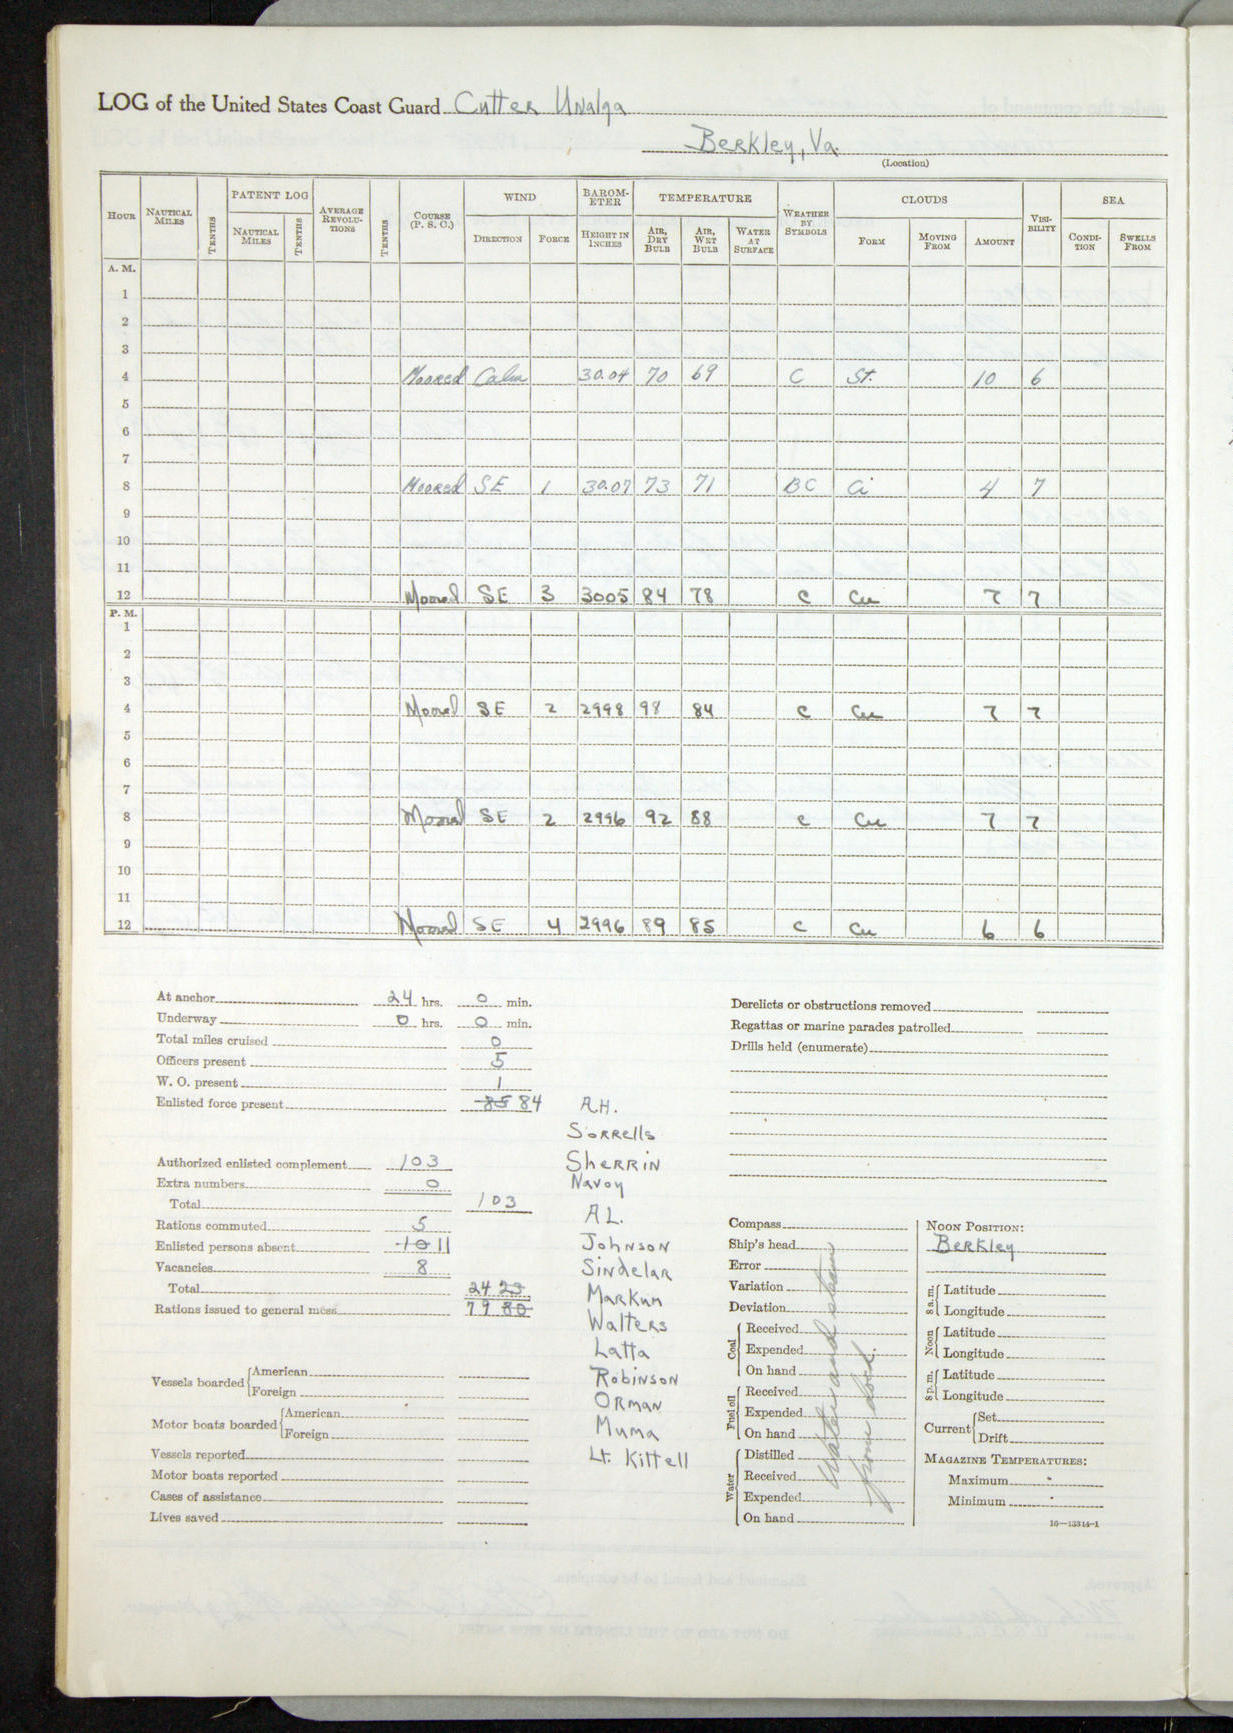 LOG of the United States Coast Guard Cutter Unalga
Berkley, Va.
(Location)
HOUR NAUTICAL MILES TENTHS PATENT LOG NAUTICAL MILES TENTHS AVERAGE REVOLUTIONS TENTHS COURSE (P. S. C.) WIND DIRECTION FORCE BAROMETER HEIGHT IN INCHES TEMPERATURE AIR, DRY BULB AIR, WET BULB WATER AT SURFACE WEATHER BY SYMBOLS CLOUDS FORM MOVING FROM AMOUNT VISIBILITY SEA CONDITION SWELLS FROM
A. M.
1
2
3
4 Moored Calm 30.04 70 69 C St. 10 6
5
6
7
8 Moored SE 1 30.07 73 71 BC Ci 4 7
9
10
11
12 Moored SE 3 3005 84 78 C Cu 7 7
P. M.
1
2
3
4 Moored SE 2 2998 98 84 C Cu 7 7
5
6
7
8 Moored SE 2 2996 92 88 C Cu 7 7
9
10
11
12 Moored SE 4 2996 89 85 C Cu 6 6
At anchor 24 hrs. 0 min.
Underway 0 hrs. 0 min.
Total miles cruised 0
Officers present 5
W. O. present 1
Enlisted force present 85 84
Authorized enlisted complement 103
Extra numbers 0
Total 103
Rations commuted 5
Enlisted persons absent 10 11
Vacancies 8
Total 24 23
Rations issued to general mess 79 80
Vessels boarded American
Foreign
Motor boats boarded American
Foreign
Vessels reported
Motor boats reported
Cases of assistance
Lives saved
A.H.
Sorrells
Sherrin
Navoy
AL.
Johnson
Sindelar
Markum
Walters
Latta
Robinson
Orman
Muma
Lt. Kittell
Derelicts or obstructions removed
Regattas or marine parades patrolled
Drills held (enumerate)
Compass
Ship's head
Error
Variation
Deviation
Coal Received
Expended
On hand
Fuel oil Received
Expended
On hand
Water Distilled
Received
Expended
On hand
Water and steam
from dock.
NOON POSITION:
Berkley
8 a. m. Latitude
Longitude
Noon Latitude
Longitude
8 p. m. Latitude
Longitude
Current Set
Drift
MAGAZINE TEMPERATURES:
Maximum
Minimum
16—13314-1